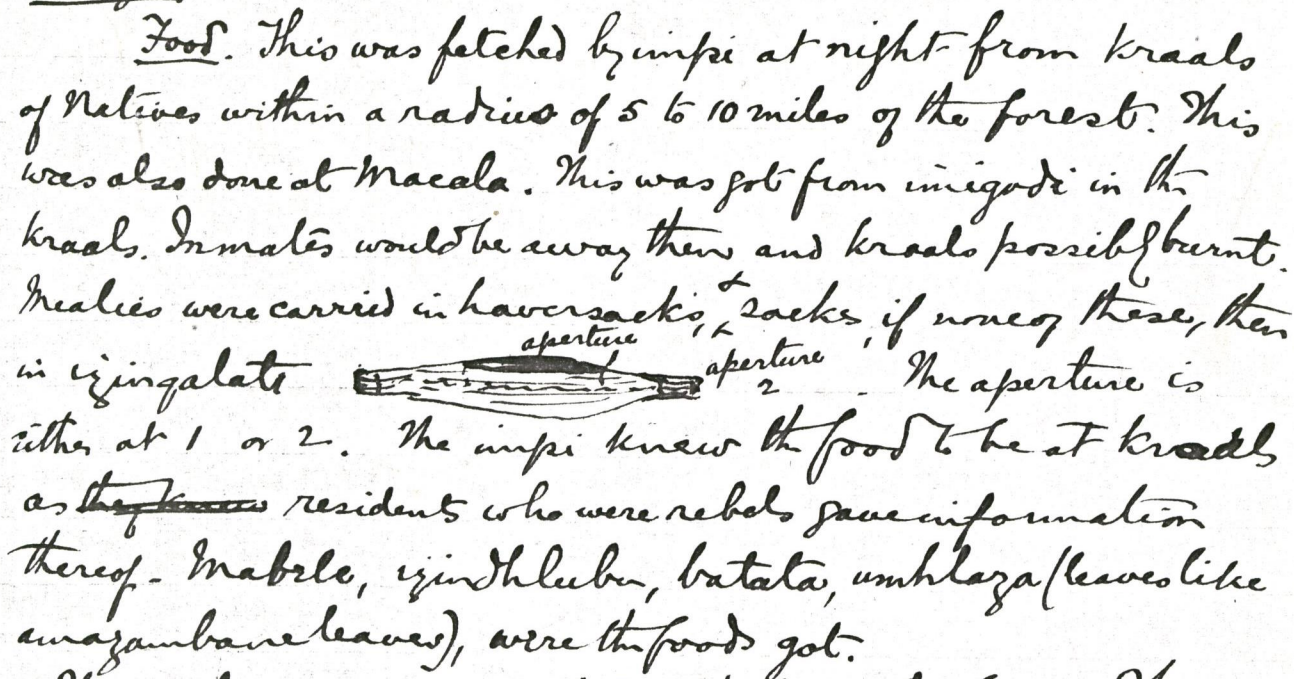 Food. This was fetched by impi at night from kraals
of Natives within a radius of 5 to 10 miles of the forest. This
was also done at Macala. This was got from imigodi in the
kraals. Inmates would be away then and kraals possibly burnt.
Mealies were carried in haversacks, & sacks, if none of these, then
aperture
in izingalati
aperture
2
. The aperture is
either at 1 or 2. The impi knew the food to be at kraals
as they knew residents who were rebels gave information
thereof - Mabele, izindhlubu, batata, umhlaza (leaves like
amazambane leaves), were the foods got.